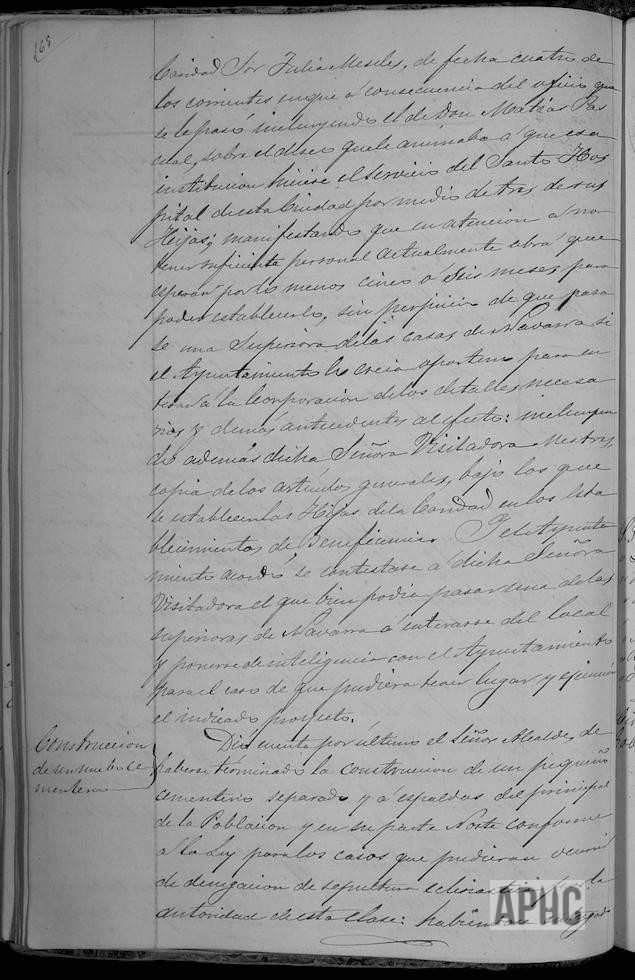 169
Caridad Sor Julia Meseles, de fecha cuatro de
los corrientes en que á consecuencia del oficio que
se le pasó incluyendo el de Don Matías Pas
cual, sobre el deseo que le animaba á que esa
institucion hiciese el servicio del Santo Hos
pital de esta Ciudad por medio de tres de sus
Hijas; manifestando que en atencion á no
tener suficiente personal actualmente abrá que
esperar por lo menos cinco ó seis meses para
poder establecerlo, sin perjuicio de que para
se una Superiora de las casas de Navarra si
el Ayuntamiento lo creia oportuno para en
terar á la Corporacion de los detalles necesa
rios y demás antecedentes al efecto: incluyen
do además dicha Señora Visitadora
copia de los artículos generales, bajo los que
se establecen las Hijas de la Caridad en los Esta
blecimientos de Beneficencia. Y el Ayunta
miento acordó se contestase á dicha Señora
Visitadora el que bien podia pasar una de las
superioras de Navarra á enterarse del local
y ponerse de inteligencia con el Ayuntamiento
para el caso de que pudiera tener lugar y ejecucion
el indicado proyecto.
Construccion
de un nuevo ce
menterio
Dió cuenta por último el Señor Alcalde, de
haberse terminado la construccion de un pequeño
cementerio separado y á espaldas del principal
de la Poblacion y en su parte Norte conforme
á la Ley para los casos que pudieran ocurrir
de denegacion de sepultura eclesiastica por la
autoridad de esta clase: habiendose
APHC